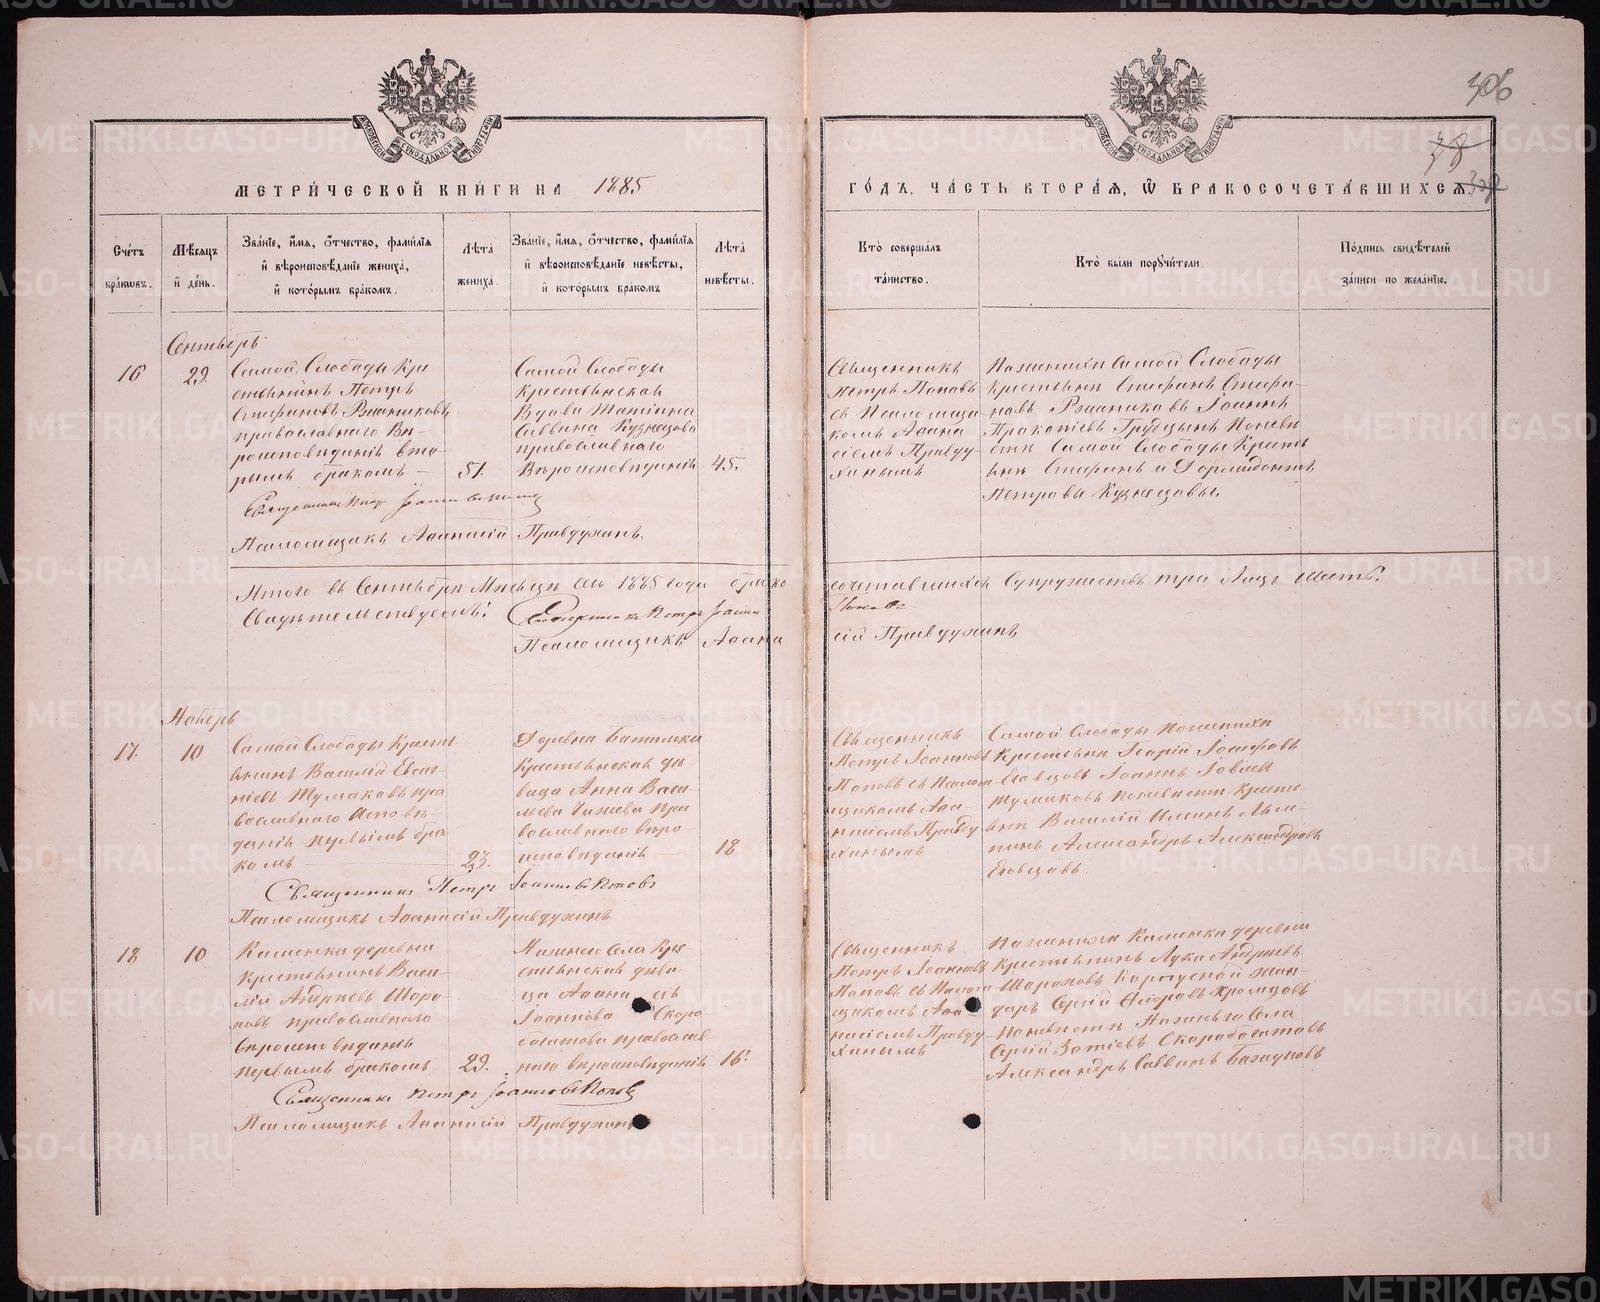 МЕТРИ́ЧЕСКОЙ КНИ́ГИ НА 1885
ГО́ДЪ, ЧА́СТЬ ВТОРА́Я, Ѿ БРАКОСОЧЕТА́ВШИХСЯ.
306
Сче́тъ бра́ковъ.
Мѣ́сяцъ и҆ де́нь.
Зва́нїе, и҆́мя, ѻ҆́тчество, фами́лїя и҆ вѣроисповѣ́данїе жениха̀, и҆ кото́рымъ бра́комъ.
Лѣ́та жениха̀.
Зва́нїе, и҆́мя, ѻ҆́тчество, фами́лїя и҆ вѣроисповѣ́данїе невѣ́сты, и҆ кото́рымъ бра́комъ
Лѣ́та невѣ́сты.
Кто̀ соверша́лъ та́инство.
Кто̀ бы́ли порꙋчи́тели.
По́дпись свидѣ́телей за́писи по жела́нїю.
Сентябрь
16
29.
Самой Слободы Кре
стьянинъ Петръ
Стефановъ Ржанниковъ
православнаго Вѣ-
роисповѣданія вто-
рымъ бракомъ —
51.
Самой Слободы
Крестьянская
Вдова Татіана
Саввина Кузнецова
православнаго
Вѣроисповѣданія
45.
Священникъ
Петръ Поповъ
съ Псаломщи-
комъ Афана
сіемъ Правду-
хинымъ
По женихѣ Самой Слободы
Крестьяне Стефанъ Стефа-
новъ Ржанниковъ Іоаннъ
Прокопіевъ По невѣ
стѣ Самой Слободы Кресть
яне Стефанъ и Дормидонтъ
Петровы Кузнецовы.
Священникъ Петръ Іоанновъ Поповъ
Псаломщикъ Афанасій Правдухинъ.
Итого въ Сентябрѣ Мѣсяцѣ сего 1885 года брако
сочетавшихся Супружествъ три Лицъ Шесть.
Свидѣтельствуемъ:
Священникъ Петръ Іоанн
Поповъ
Псаломщикъ Афана
сій Правдухинъ
Ноябрь
17.
10
Самой Слободы Кресть
янинъ Василій Евге-
ніевъ Тумаковъ пра
вославнаго Исповѣ-
данія первымъ бра
комъ
23.
Деревни
Крестьянская дѣ-
вица Анна Васи-
льева пра
вославнаго вѣро-
исповѣданія
18
Священникъ
Петръ Іоанновъ
Поповъ съ Псалом-
щикомъ Афа-
насіемъ Правду
хинымъ
Самой Слободы По женихѣ
Крестьяне Георгій Іосифовъ
Еговцовъ Іоаннъ Іовлевъ
Тумаковъ По невѣстѣ Кресть
яне Василій Ильинъ
Александръ Александровъ
Еговцовъ.
Священникъ Петръ Іоанновъ Поповъ
Псаломщикъ Афанасій Правдухинъ
18
10
Каменки деревни
Крестьянинъ Васи-
лій Андреевъ Шоро-
ховъ православнаго
вѣроисповѣданія
первымъ бракомъ
29.
Крe-
стьянская дѣви-
ца Афана сія
Іоаннова Скоро
богатова православ-
наго вѣроисповѣданія
16.
Священникъ
Петръ Іоанновъ
Поповъ съ Псалом-
щикомъ Афа
насіемъ Правду-
хинымъ
По женихѣ Каменки деревни
Крестьянинъ Лука Андреевъ
Шороховъ жан-
даръ Сергій Хромцовъ
По невѣстѣ Села
Сергій Зотіевъ Скоробогатовъ
Александръ Саввинъ Базауновъ
Священникъ Петръ Іоанновъ Поповъ
Псаломщикъ Афанасій Правдухинъ